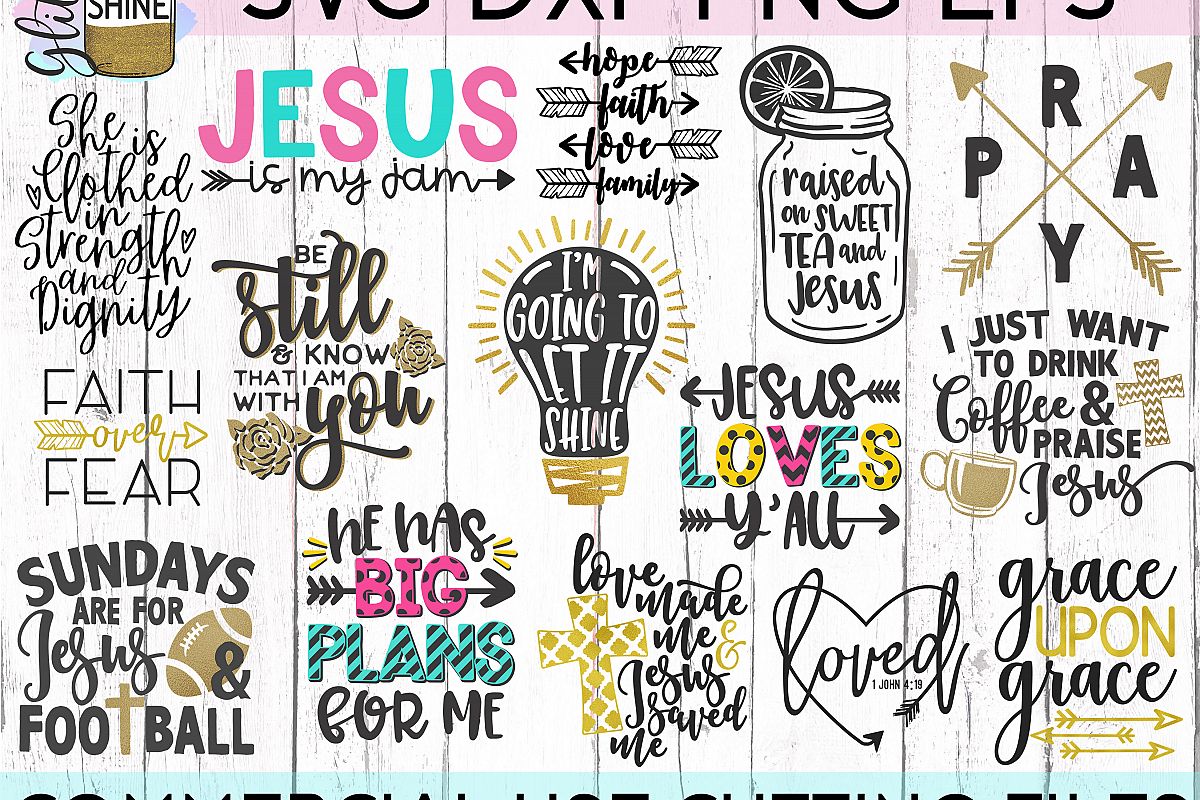 SVG DXF PNG EPS
SHINE
She is
Clothed
in
Strength
and
Dignity
JESUS
is my jam
hope
faith
love
family
raised
on SWEET
TEA and
Jesus
P R A Y
BE
still
& KNOW
THAT I AM
WITH
you
I'M
GOING TO
LET IT
SHINE
I JUST WANT
TO DRINK
Coffee &
PRAISE
Jesus
FAITH
over
FEAR
JESUS
LOVES
Y'ALL
SUNDAYS
ARE FOR
Jesus
&
FOOTBALL
HE HAS
BIG
PLANS
FOR ME
love
made
me &
Jesus
saved
me
loved
1 JOHN 4:19
grace
UPON
grace
COMMERCIAL USE CUTTING FILES